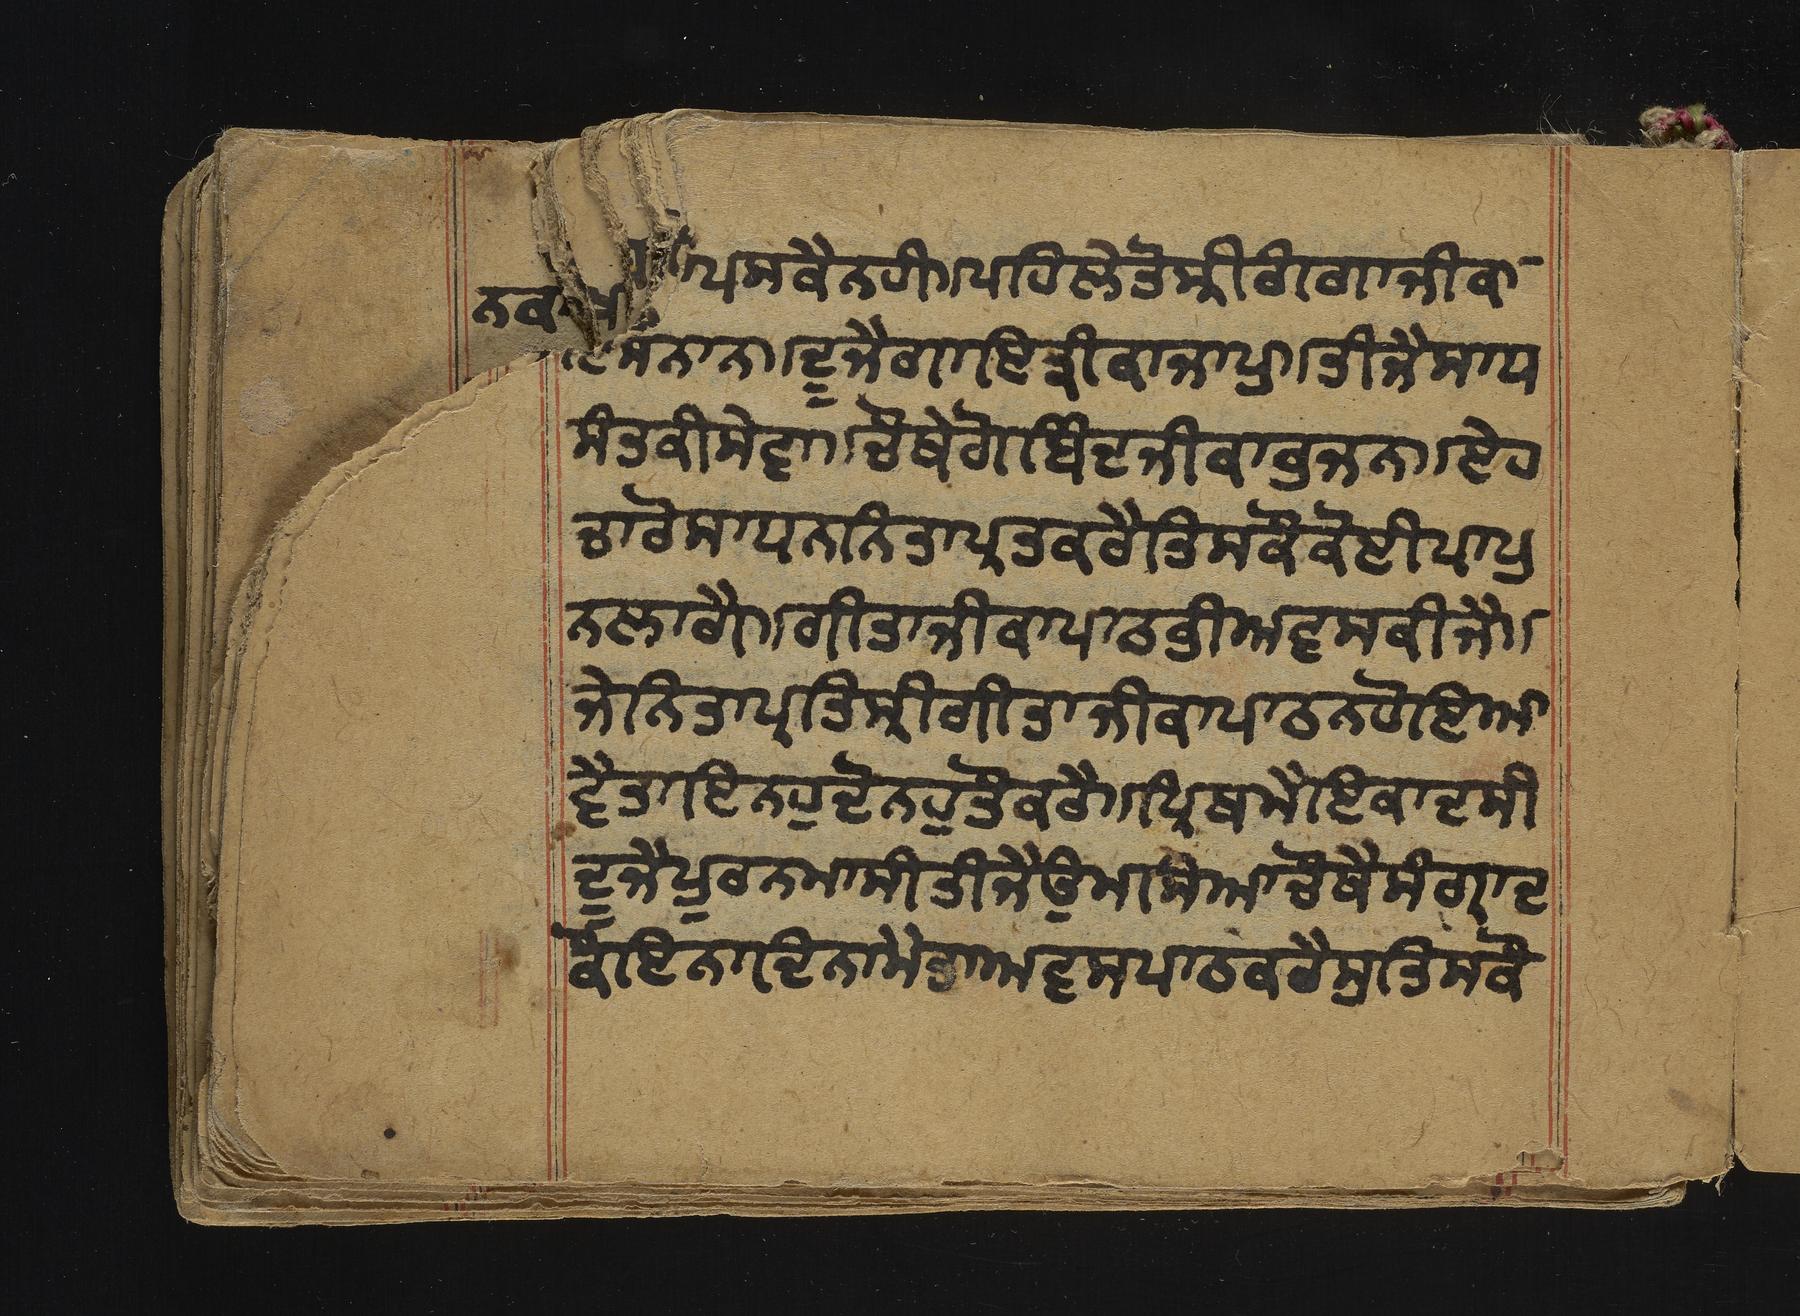 ਪਸਕੈਨਹੀ॥ਪਹਿਲੇਤੋਸ੍ਰੀਗੰਗਾਜੀਕਾ
ਨਕ
ਇਸਨਾਨ॥ਦੂਜੈਗਾਇਤ੍ਰੀਕਾਜਾਪੁ॥ਤੀਜੈਸਾਧ
ਸੰਤਕੀਸੇਵਾ॥ਚੌਥੇਗੋਬਿੰਦਜੀਕਾਭੁਜਨ॥ਏਹ
ਚਾਰੋਸਾਧਨਨਿਤਾਪ੍ਰਤਕਰੈਤਿਸਕੌਕੋਈਪਾਪੁ
ਨਲਾਗੈ॥ਗੀਤਾਜੀਕਾਪਾਠਭੀਅਵਸਕੀਜੈ॥
ਜੇਨਿਤਾਪ੍ਰਤਿਸ੍ਰੀਗੀਤਾਜੀਕਾਪਾਠਨਹੋਇਆ
ਵੈਤਾਇਨਹੁਦੋਨਹੁਤੋਕਰੈ॥ਪ੍ਰਿਥਮੈਇਕਾਦਸੀ
ਦੂਜੈਪੂਰਨਮਾਸੀਤੀਜੈਊਮਾਸਿਆਚੌਥੈਸੰਗ੍ਰਾਦ
ਕੌਇਨਾਦਿਨਾਮੇਤਾਅਵਸਪਾਠਕਰੈਸੁਤਿਸਕੌ